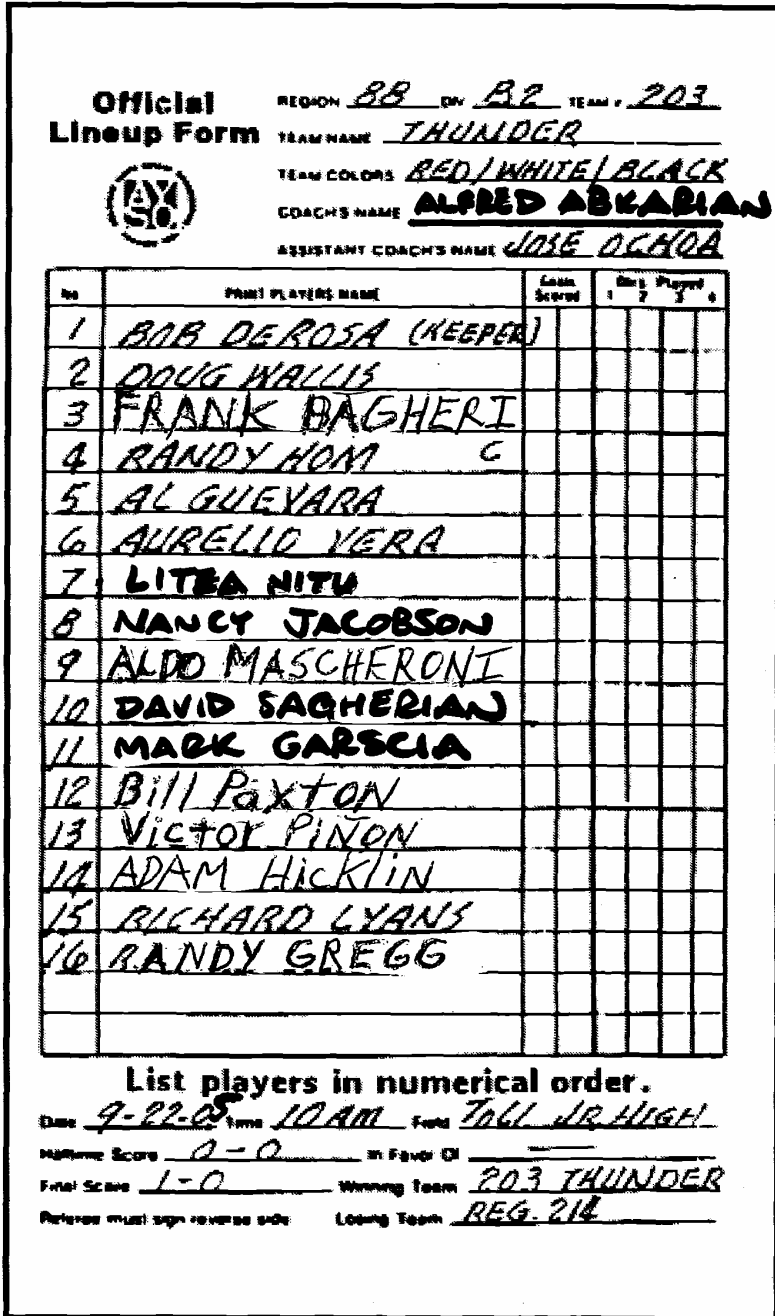 Official
Lineup Form
AYSO
REGION 88 DIV B2 TEAM # 203
TEAM NAME THUNDER
TEAM COLORS RED/WHITE/BLACK
COACH'S NAME ALFRED ABKARIAN
ASSISTANT COACH'S NAME JOSE OCHOA
No PRINT PLAYERS NAME Goals Scored Qtrs Played
1 2 3 4
1 BOB DEROSA (KEEPER)
2 DOUG WALLIS
3 FRANK BAGHERI
4 RANDY HOM C
5 AL GUEVARA
6 AURELIO VERA
7 LITEA NITU
8 NANCY JACOBSON
9 ALDO MASCHERONI
10 DAVID SAGHERIAN
11 MARK GARSCIA
12 Bill PaxTON
13 Victor PIÑON
14 ADAM HickliN
15 RICHARD LYANS
16 RANDY GREGG
List players in numerical order.
Date 9-22-05 Time 10 AM Field Toll JR. HIGH
Halftime Score 0-0 In Favor Of —
Final Score 1-0 Winning Team 203 THUNDER
Referee must sign reverse side Losing Team REG. 214